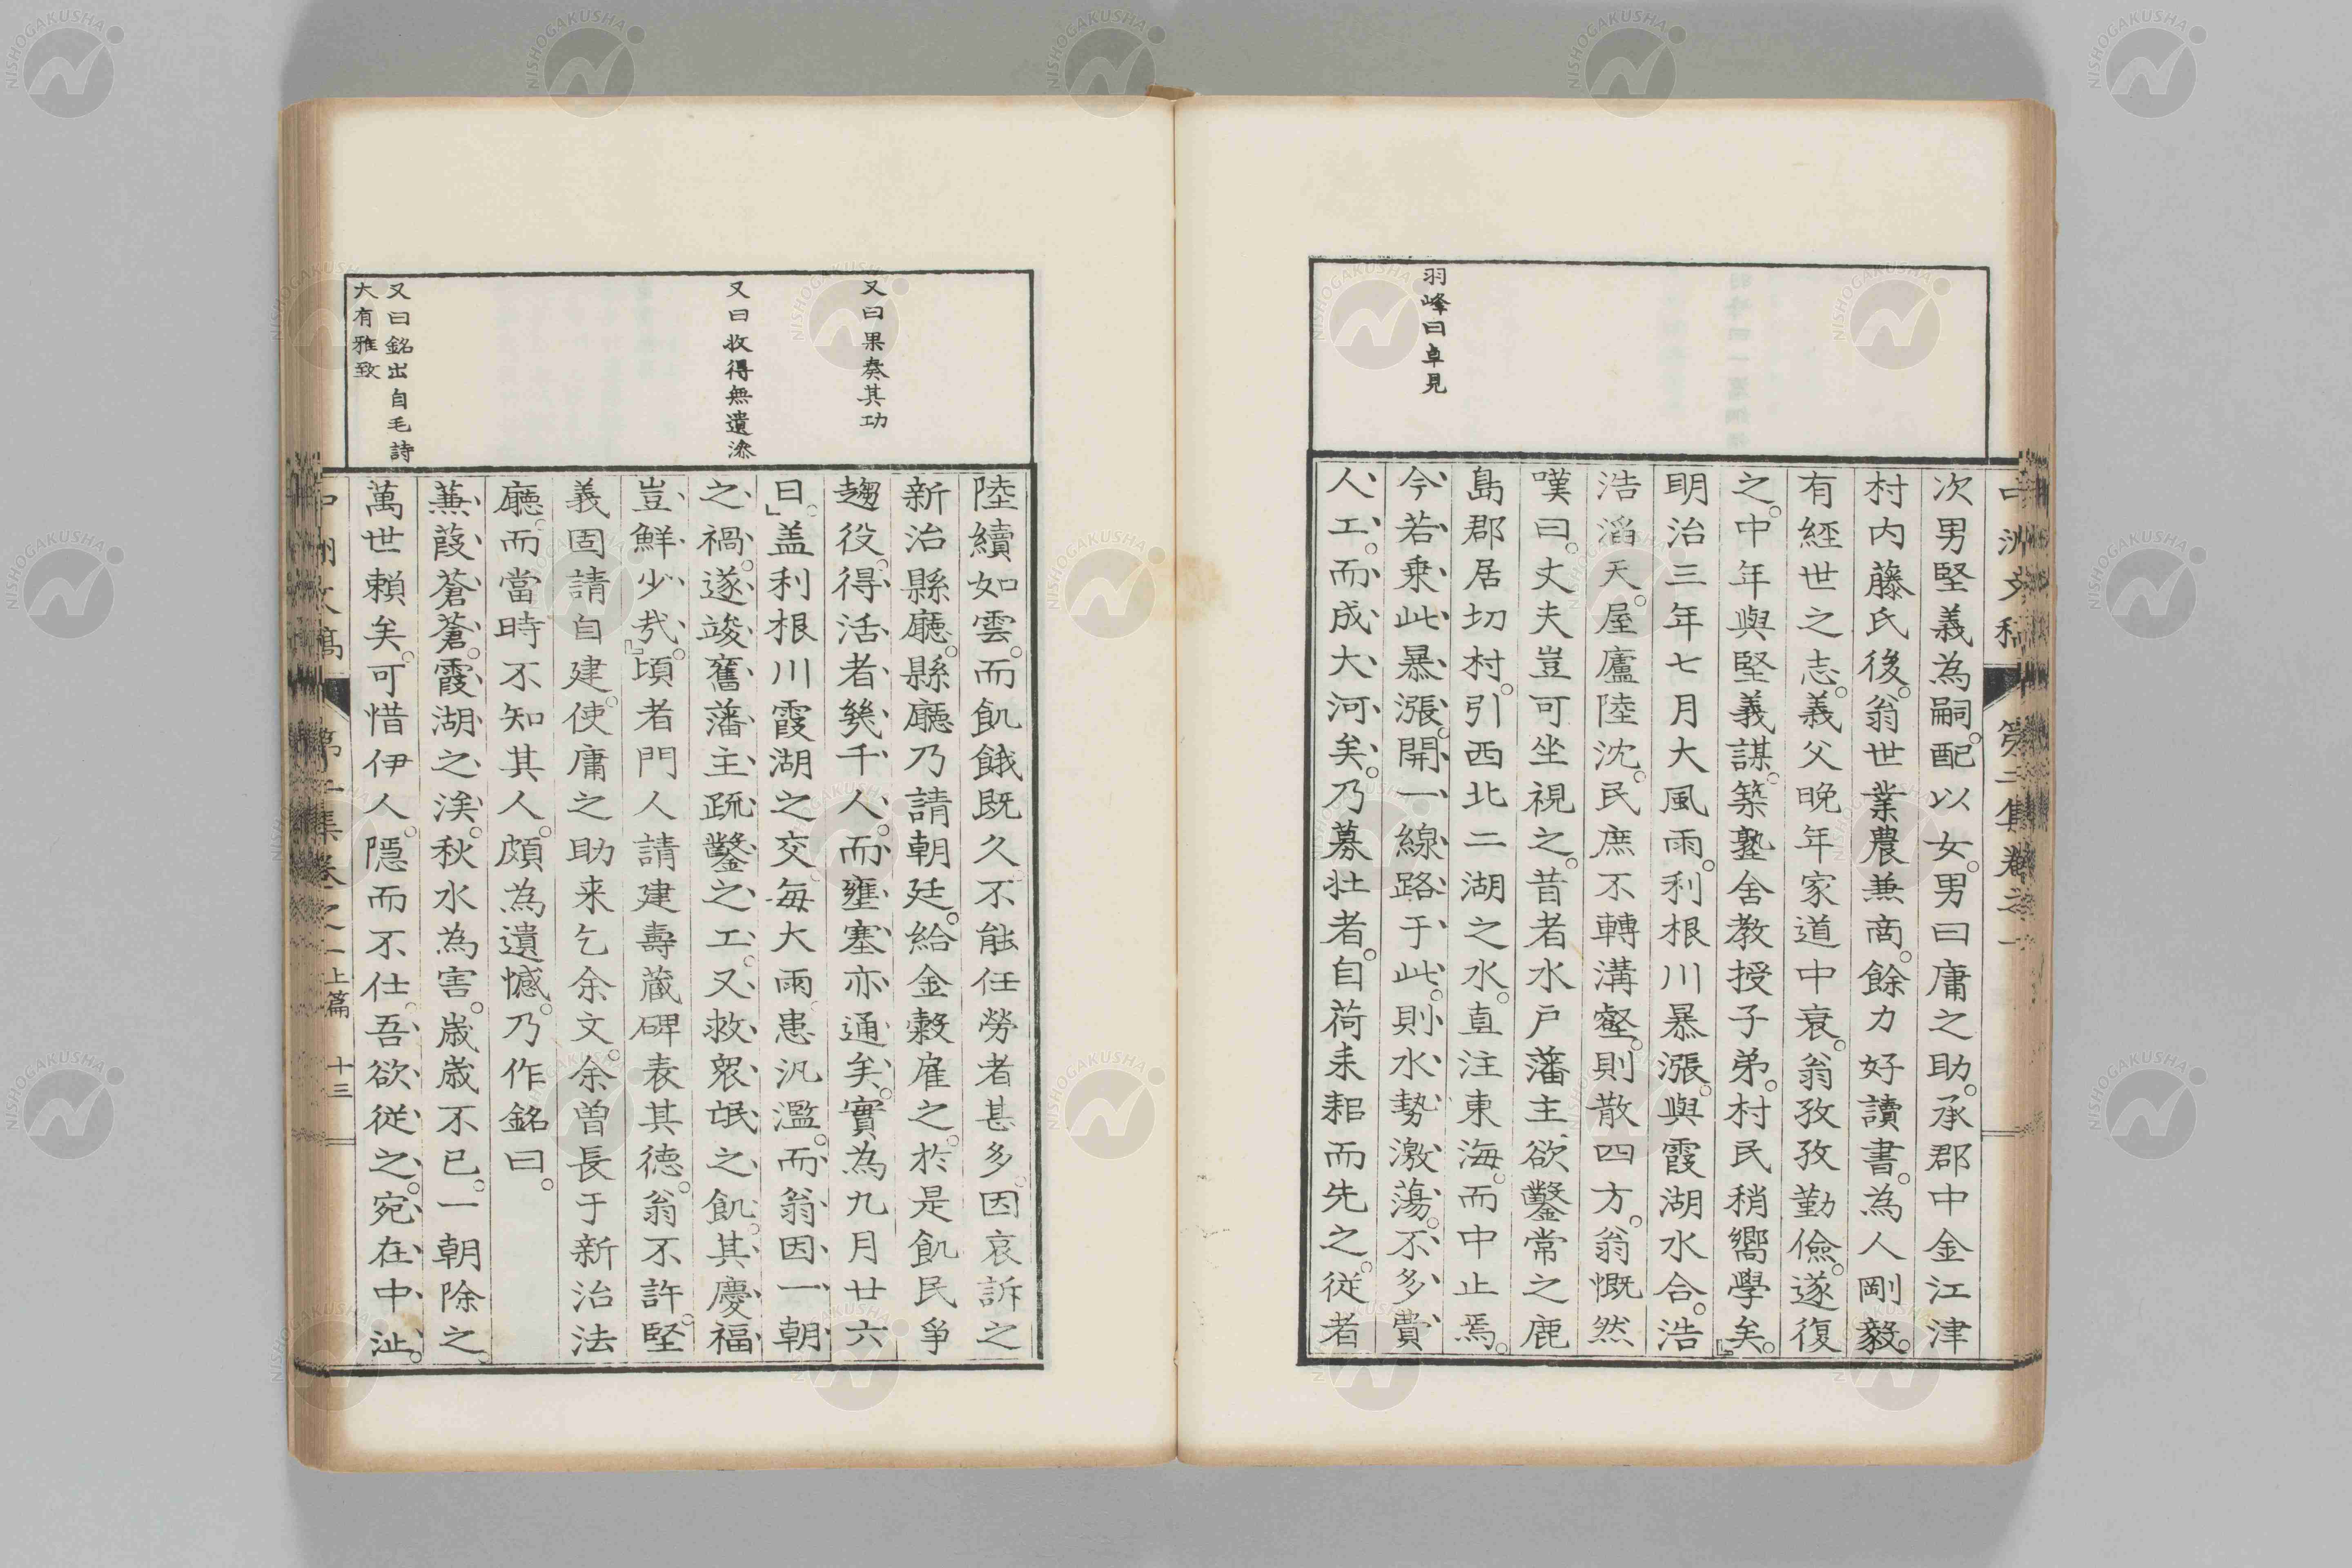 羽峰曰卓見
次男堅義為嗣。配以女。男曰庸之助。承郡中金江津
村内藤氏後。翁世業農兼商。餘力好讀書。為人剛毅。
有經世之志。義父晩年家道中衰。翁孜孜勤儉。遂復
之。中年與堅義謀。築塾舍教授子弟。村民稍嚮學矣。
明治三年七月大風雨。利根川暴漲。與霞湖水合。浩
浩滔天。屋廬陸沈。民庶不轉溝壑。則散四方。翁慨然
嘆曰。丈夫豈可坐視之。昔者水戸藩主欲鑿常之鹿
島郡居切村。引西北二湖之水。直注東海。而中止焉。
今若乗此暴漲。開一線路于此。則水勢激蕩。不多費
人工。而成大河矣。乃募壮者。自荷耒耜而先之。従者
又曰果奏其功
又曰收得無遺滲
又曰銘出自毛詩
大有雅致
陸續如雲。而飢餓既久。不能任勞者甚多。因哀訴之
新治縣廳。縣廳乃請朝廷。給金穀雇之。於是飢民爭
趨役。得活者幾千人。而壅塞亦通矣。實為九月廿六
日。盖利根川霞湖之交。毎大雨。患汎濫。而翁因一朝
之禍。遂竣舊藩主疏鑿之工。又救衆氓之飢。其慶福
豈鮮少哉。頃者門人請建壽蔵碑表其德。翁不許。堅
義固請自建。使庸之助来乞余文。余曽長于新治法
廳。而當時不知其人。頗為遺憾。乃作銘曰。
蒹葭蒼蒼。霞湖之涘。秋水為害。歳歳不已。一朝除之。
萬世頼矣。可惜伊人。隠而不仕。吾欲従之。宛在中沚。
上篇 十三